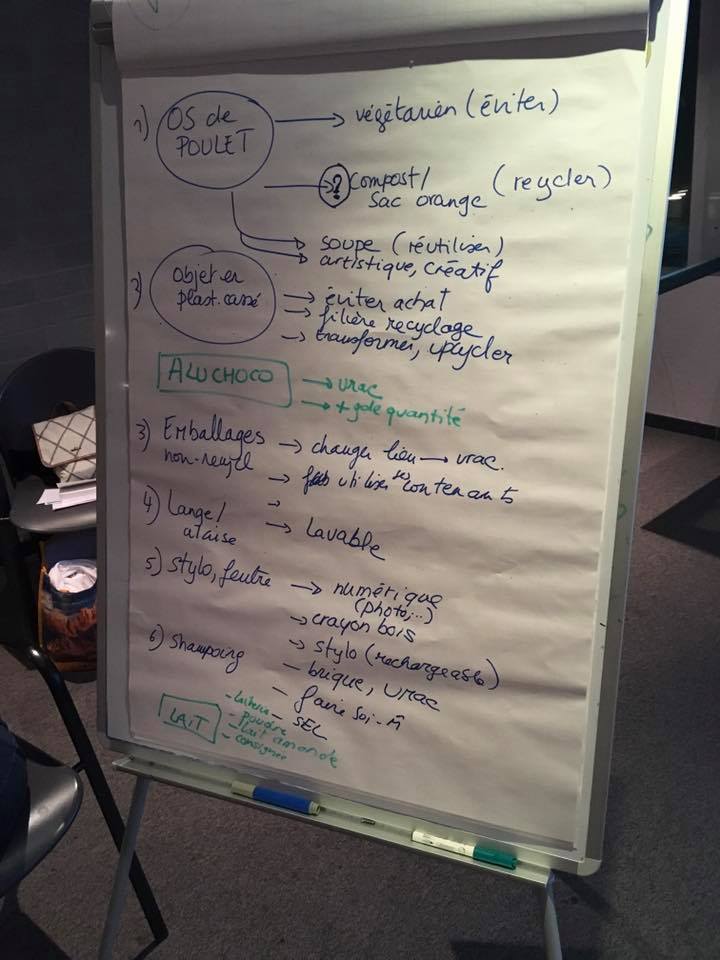 1) OS de POULET → végétarien (éviter)
→ ? compost/ sac orange (recycler)
→ soupe (réutiliser)
→ artistique, créatif
2) Objet en plast. cassé → éviter achat
→ filière recyclage
→ transformer, upcycler
ALU CHOCO → vrac
→ + gde quantité
3) Emballages → changer lieu → vrac.
→ utiliser ses contenants
4) Lange/ alaise →
→ Lavable
5) Stylo, feutre → numérique
(photo,...)
→ crayon bois
→ stylo (rechargeable)
6) Shampoing – brique, vrac
– faire soi-m̂
– SEL
LAIT
– poudre
– lait amande
– consignée